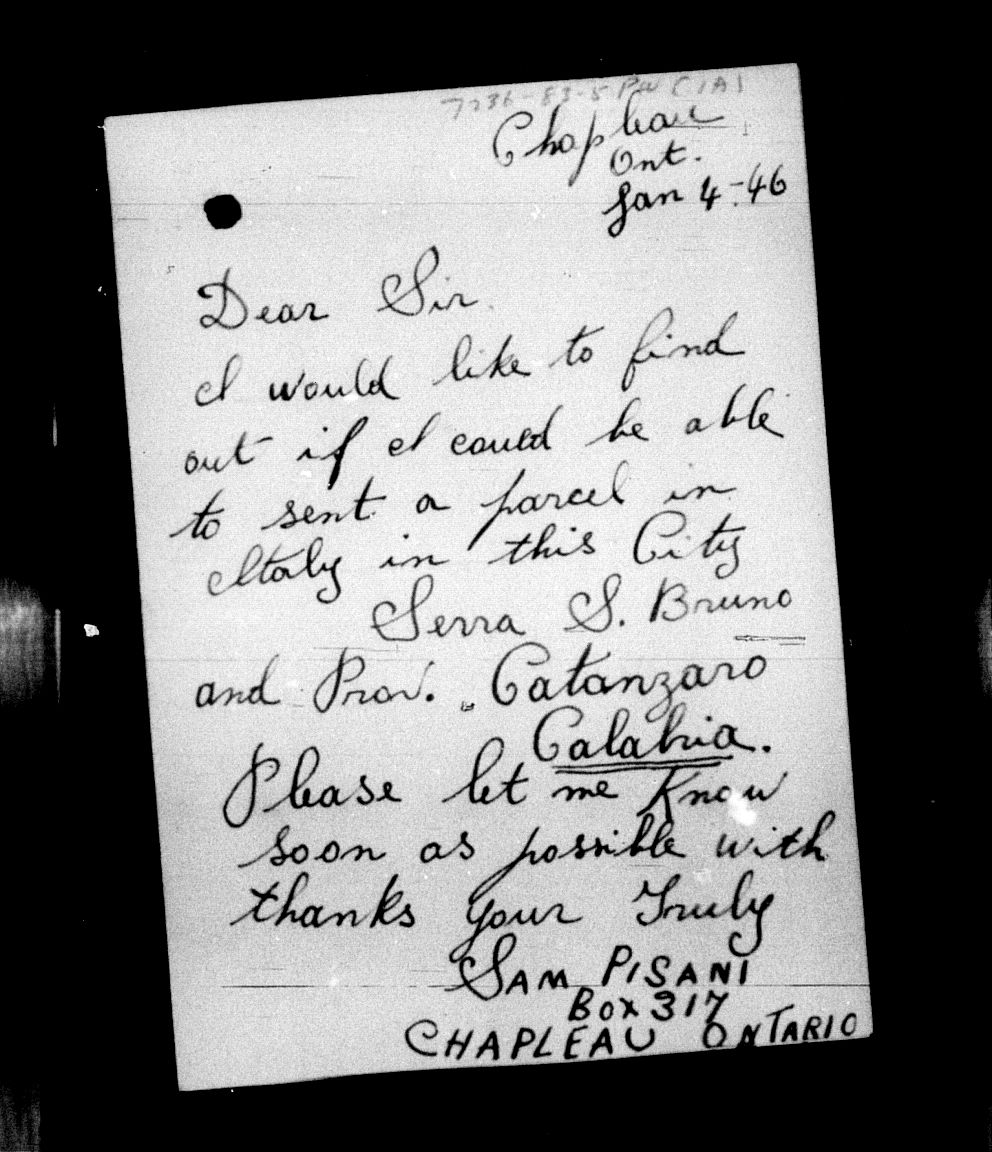 7236-83-5 PW (1A)
Chapleau
Ont.
Jan 4-46
Dear Sir.
I would like to find
out if I could be able
to sent a parcel in
Italy in this City
Serra S. Bruno
and Prov. Catanzaro
Calabria.
Please let me Know
soon as possible with
thanks your Truly
SAM PISANI
BOX 317
CHAPLEAU ONTARIO